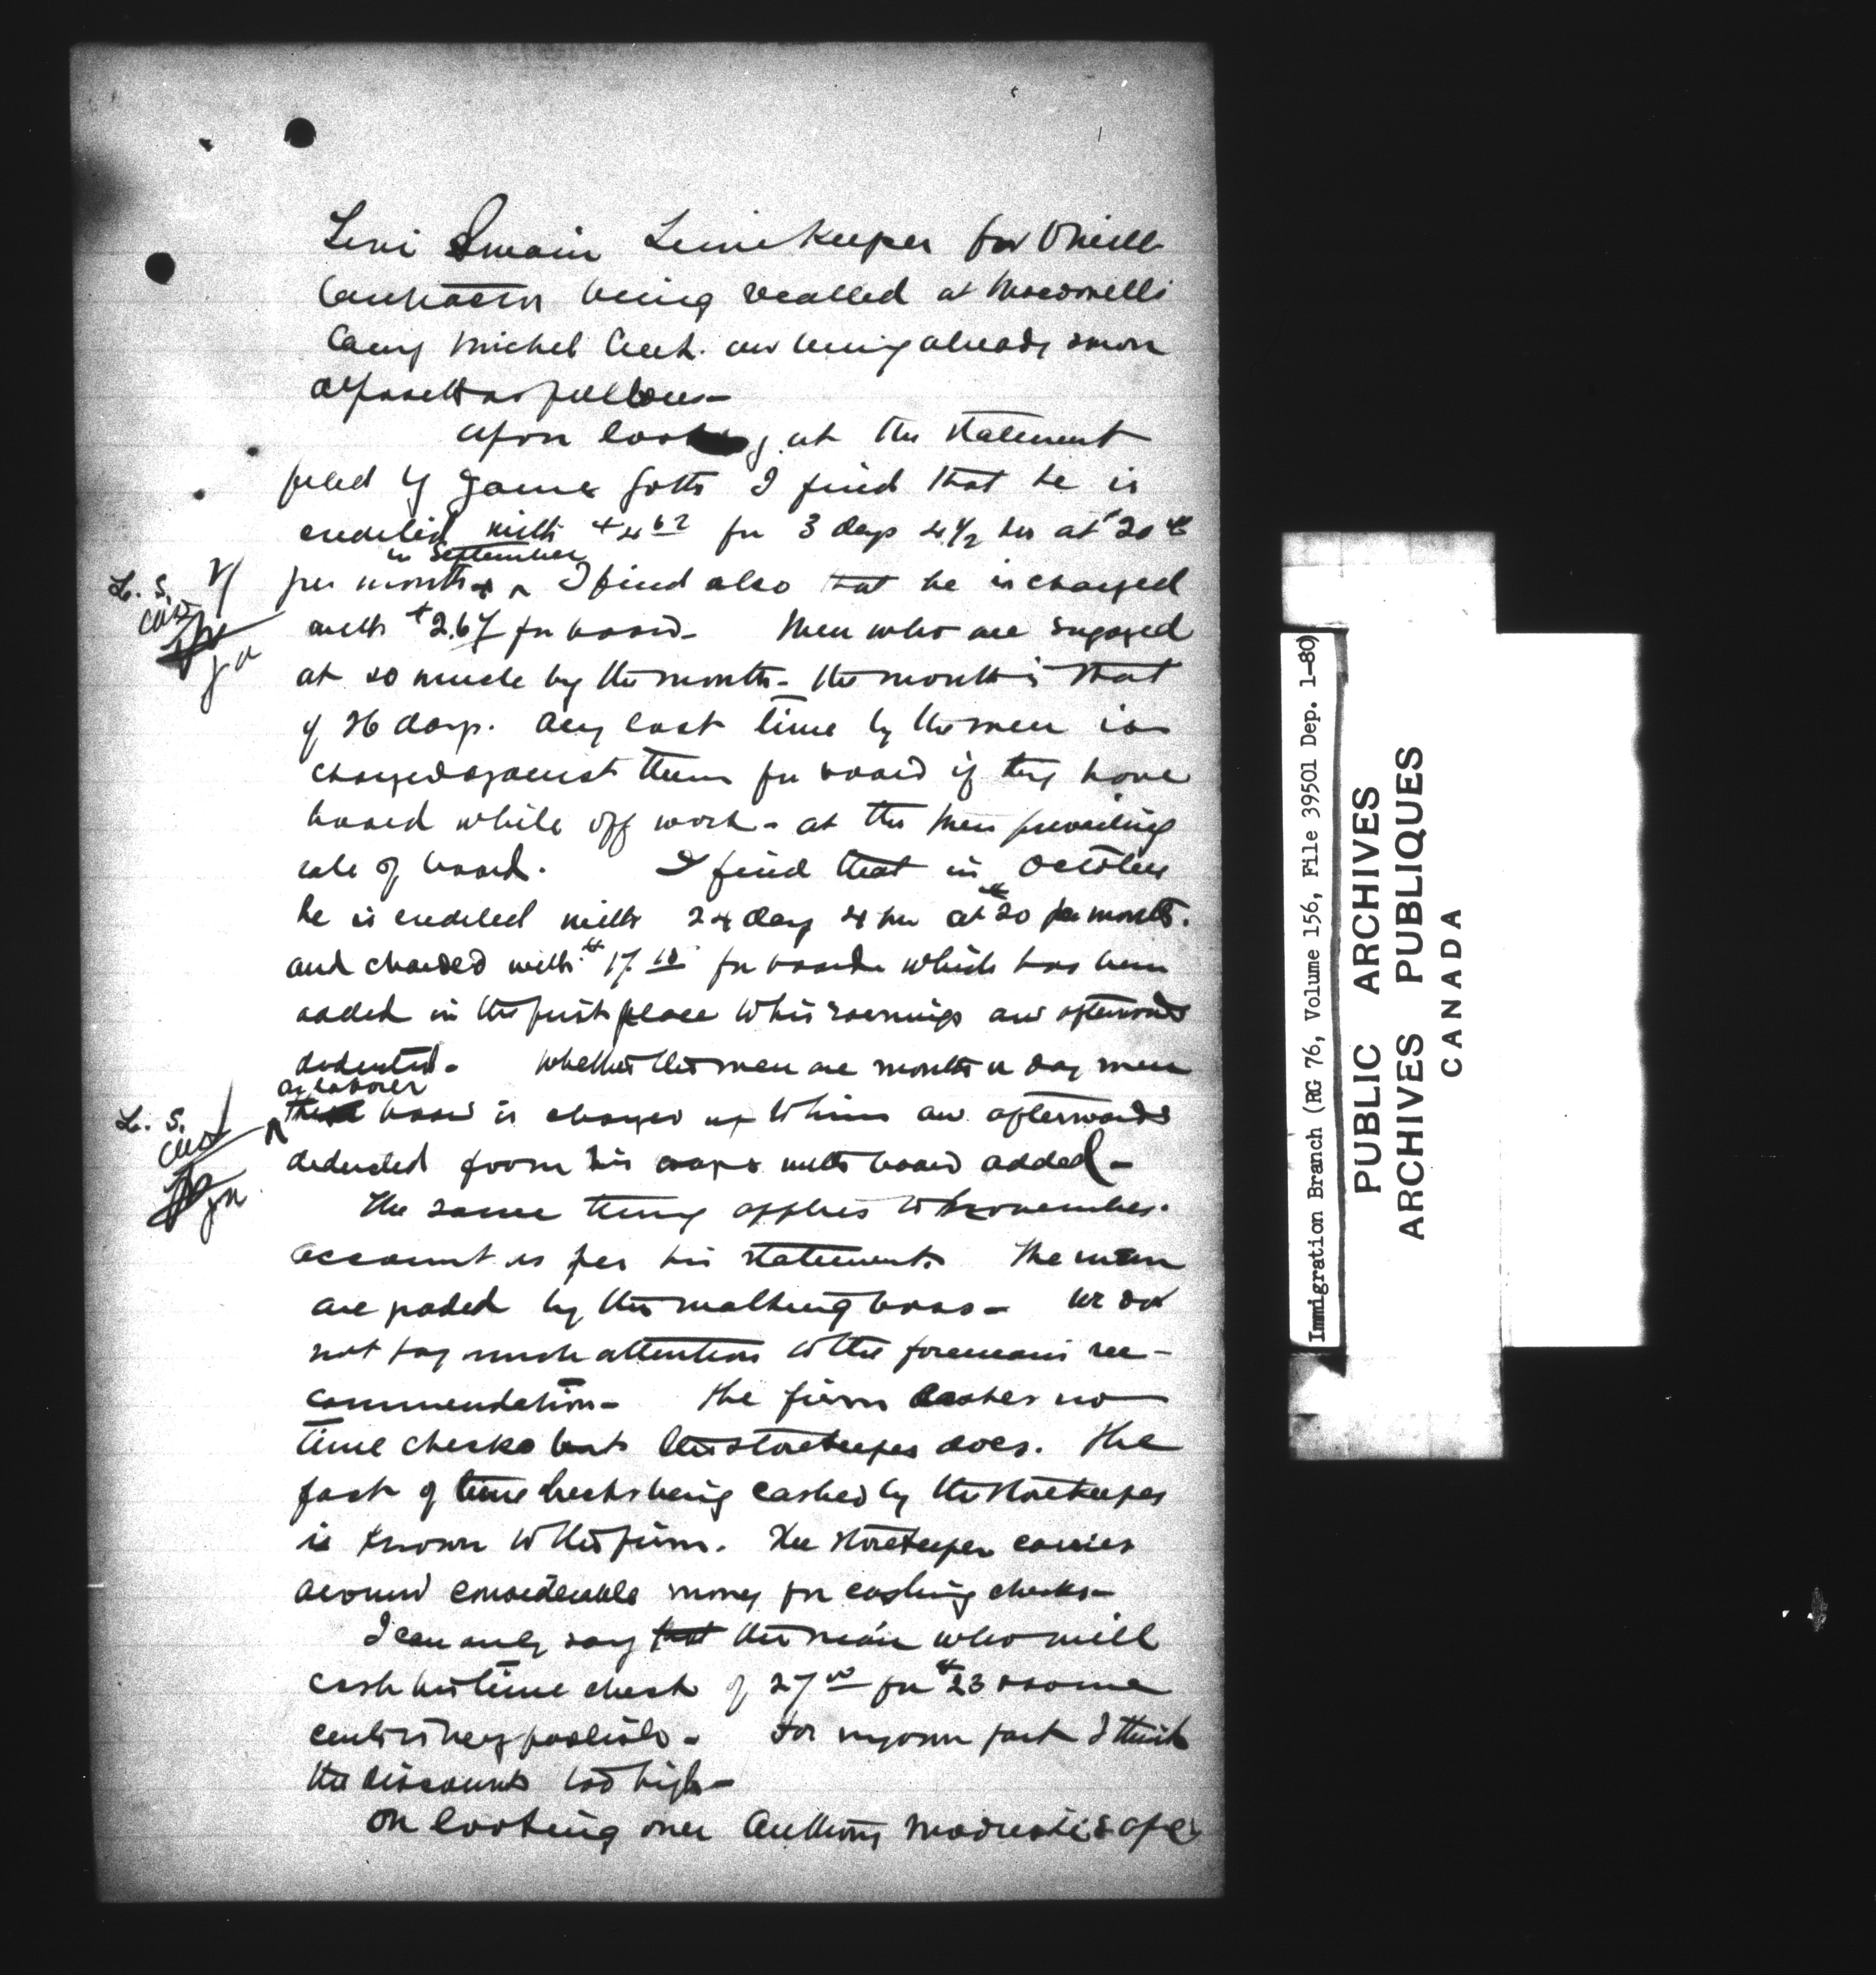 Levi Swain Timekeeper for Oneill
Contractor being recalled at Macdonells
Camp Michel Creek. and being already sworn
deposeth as follows—
Upon looking at the statement
filed by Gotts I find that he is
credited with $4 62 for 3 days 4 1/2 hrs at $20 00
in September
per month I find also that he is charged
with $2.67 for board— Men who are engaged
at so much by the month— the month is that
of 26 days. Any lost time by the men is
charged against them for board if they have
board while off work— at the then prevailing
rate of board. I find that in October
he is credited with 24 day 4 hrs at $20 per month.
and charged with $17. 18 for board which has been
added in the first place to his earnings and afterwards
deducted— Whether the men are month or day men
a laborer
board is charged up to him and afterwards
deducted from his wages with board added—
The same thing applies to November
account as per his statement. The men
are paid by the walking boss— We do
not pay much attention to the foremans re-
commendation— The firm cashes no
time checks but the storekeeper does. The
fact of time checks being cashed by the storekeeper
is known to the firm. The storekeeper carries
around considerable money for cashing checks—
I can only say that the man who will
cash his time check of 27 00 for $23 & some
cents is very foolish— For my own part I think
the discounts too high—
On looking over Anthony
L. S.
L. S.
Immigration Branch (RG 76, Volume 156, File 39501 Dep. 1-80)
PUBLIC ARCHIVES
ARCHIVES PUBLIQUES
CANADA